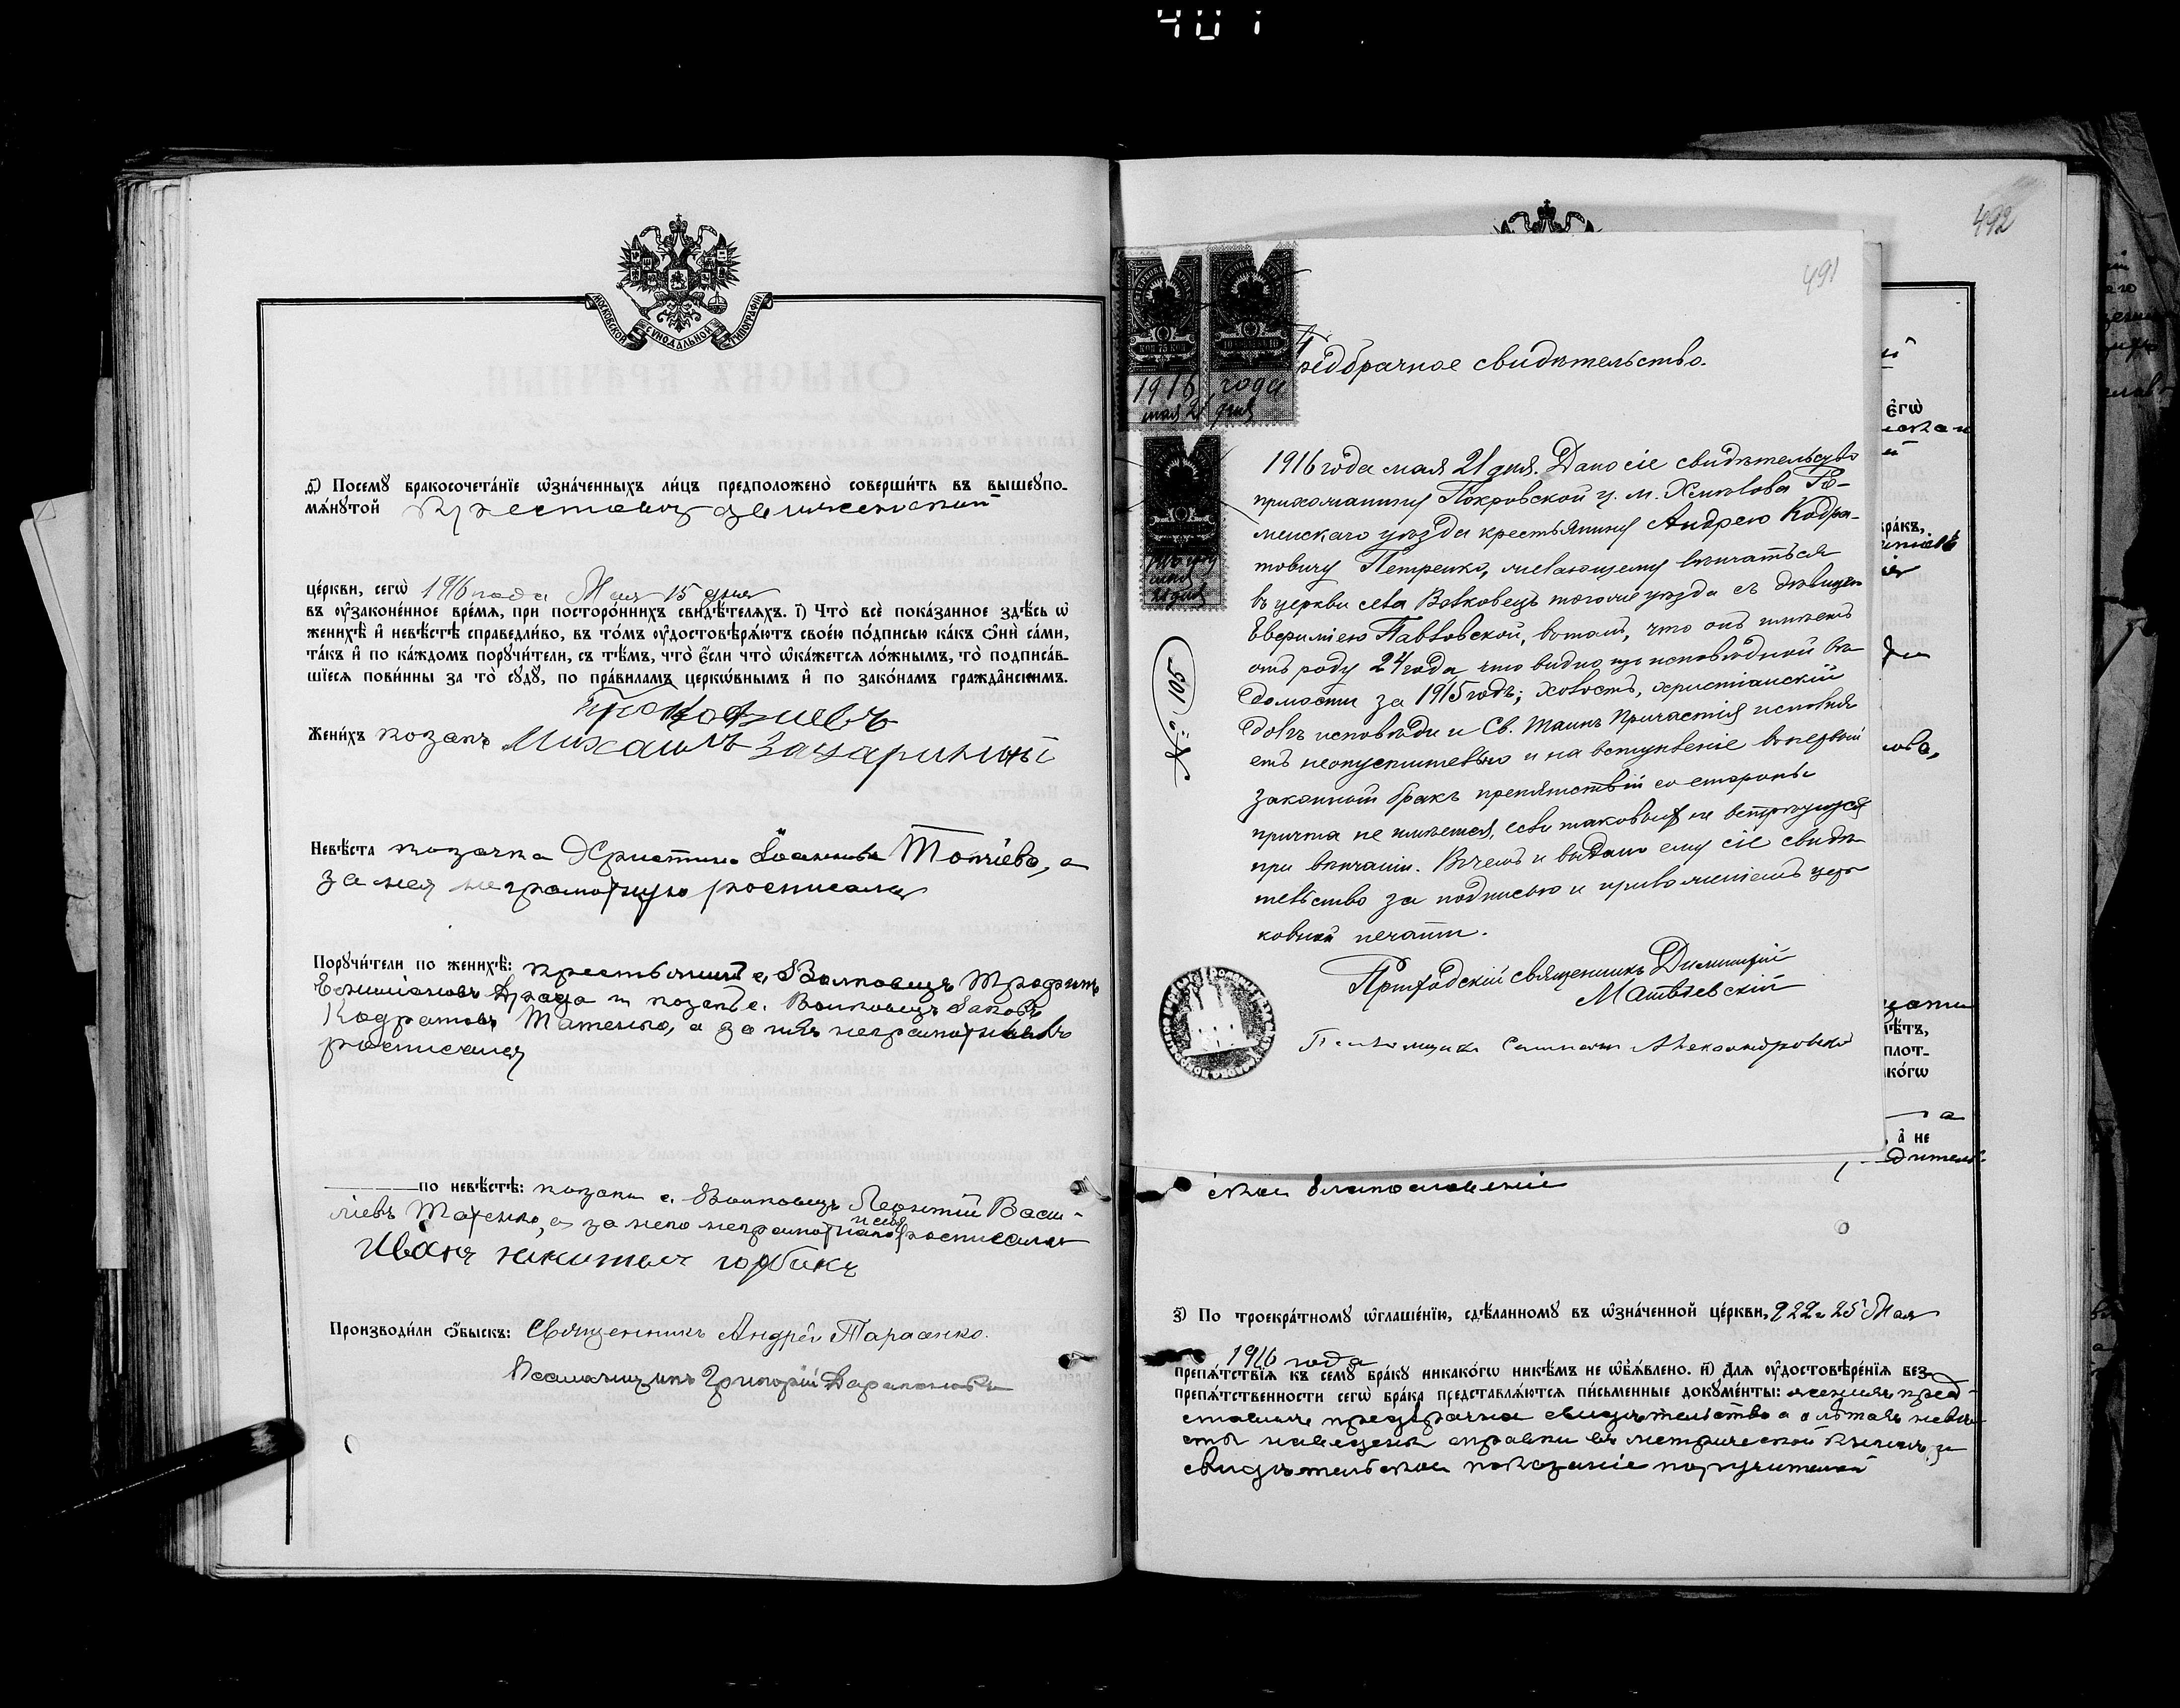 401
МОСКОВСКОЙ СУНОДАЛЬНОЙ ТИПОГРАФІИ
Посемꙋ бракосочета́нїе ѡ҆зна́ченныхъ ли́цъ предположено̀ соверши́ть въ вышеꙋпо-
мѧ́нꙋтой Крестовоздвиженской
це́ркви, сегѡ̀ 1916 года Мая 15 дня
въ ᲂу҆зако́ненное вре́мѧ, при посторо́ннихъ свидѣ́телѧхъ. і҃) Что̀ всѐ пока́занное здѣ́сь ѡ҆
женихѣ̀ и҆ невѣ́стѣ справедли́во, въ то́мъ ᲂу҆достовѣрѧ́ютъ свое́ю по́дписью ка́къ ѻ҆нѝ са́ми,
та́къ и҆ по ка́ждомъ порꙋчи́тели, съ тѣ́мъ, что̀ є҆́сли что̀ ѡ҆ка́жетсѧ ло́жнымъ, то̀ подписа́в-
шїесѧ пови́нны за то̀ сꙋдꙋ̀, по пра́виламъ церко́внымъ и҆ по зако́намъ гражда́нскимъ.
Жени́хъ козакъ Михаилъ
Невѣ́ста козачка Христина Іоаннова Топчіева, а
за нея неграмотную росписался
Порꙋчи́тели по женихѣ̀: крестьянинъ с. Волковецъ Трофимъ
и козакъ с. Волковецъ Іаковъ
Кодратовъ Татенко, а за нихъ неграмотныхъ
росписался
по невѣ́стѣ: козаки с. Волковецъ Леонтій Васи-
ліевъ Татенко, а за него неграмотнаго и себя росписался
Иванъ никитовъ горбикъ
Производи́ли ѻ҆́быскъ: Священникъ Андрей Тарасенко.
Псаломщикъ Григорій
492
491
КОП 75 КОП
1916 года
мая 21 дня
1916 году
мая
21 дня
№ 105
Предбрачное свидѣтельство.
1916 года мая 21 дня. Дано сіе свидѣтельство
прихожанину Покровской ц. м. Хмѣлова Ро-
менскаго уѣзда крестьянину Андрею Кодра-
товичу Петренко, желающему вѣнчаться
въ церкви села Волковецъ того же уѣзда съ дѣвицею
Евфиміею Павловской, въ томъ, что онъ имѣетъ
отъ роду 24 года что видно изъ исповѣдной вѣ-
домости за 1915 годъ; холостъ, христіанскій
долгъ исповѣди и Св. Таинъ Причастія исполня-
етъ неопустительно и на вступленіе въ первый
законный бракъ препятствій со стороны
причта не имѣется, если таковыхъ не встрѣтится
при вѣнчаніи. Въ чемъ и выдано ему сіе свидѣ-
тельство за подписью и приложеніемъ цер-
ковной печати.
Приходскій священникъ Димитрій
Матвѣевскій
Псаломщикъ Александровскій
є҆гѡ̀
ра́къ,
лѣ́тъ,
плот-
ко́гѡ
а
, а҆ не
ское благословеніе
з҃) По троекра́тномꙋ ѡ҆глаше́нїю, сдѣ́ланномꙋ въ ѡ҆зна́ченной це́ркви, 9 22 и 25 Мая
1916 года
препѧ́тствїѧ къ семꙋ̀ бра́кꙋ никако́гѡ никѣ́мъ не ѡ҆б̾ѧ́влено. и҃) Длѧ̀ ᲂу҆достовѣре́нїѧ без-
препѧ́тственности сегѡ̀ бра́ка представлѧ́ютсѧ пи́сьменные докꙋме́нты: женихъ пред-
ставилъ предбрачное свидѣтельство а о лѣтахъ невѣ-
сты наведены справки въ метрической книгѣ, и
свидѣтельское показаніе поручителей